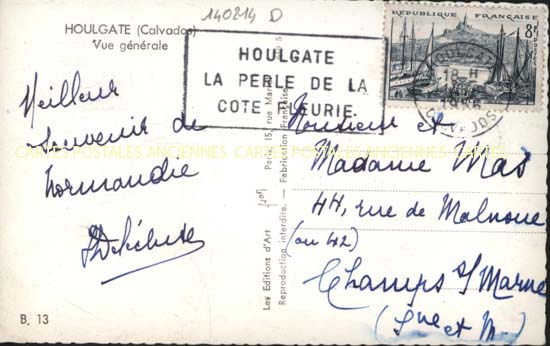 140214 D
HOULGATE (Calvados)
Vue générale
HOULGATE
LA PERLE DE LA
COTE FLEURIE
RÉPUBLIQUE FRANÇAISE
8F
POSTES
HOULGATE
18 H
CALVADOS
Meilleur
Souvenir de
Normandie
CARTES POSTALES ANCIENNES CARTES POSTALES ANCIENNES CARTES
Monsieur et
Madame Mas
44, rue de Malnoue
(ou 42)
Champs s/ Marne
(Sne et M.)
Les Editions d'Art
Paris, 15, rue
Reproduction interdite. - Fabrication Française
B. 13